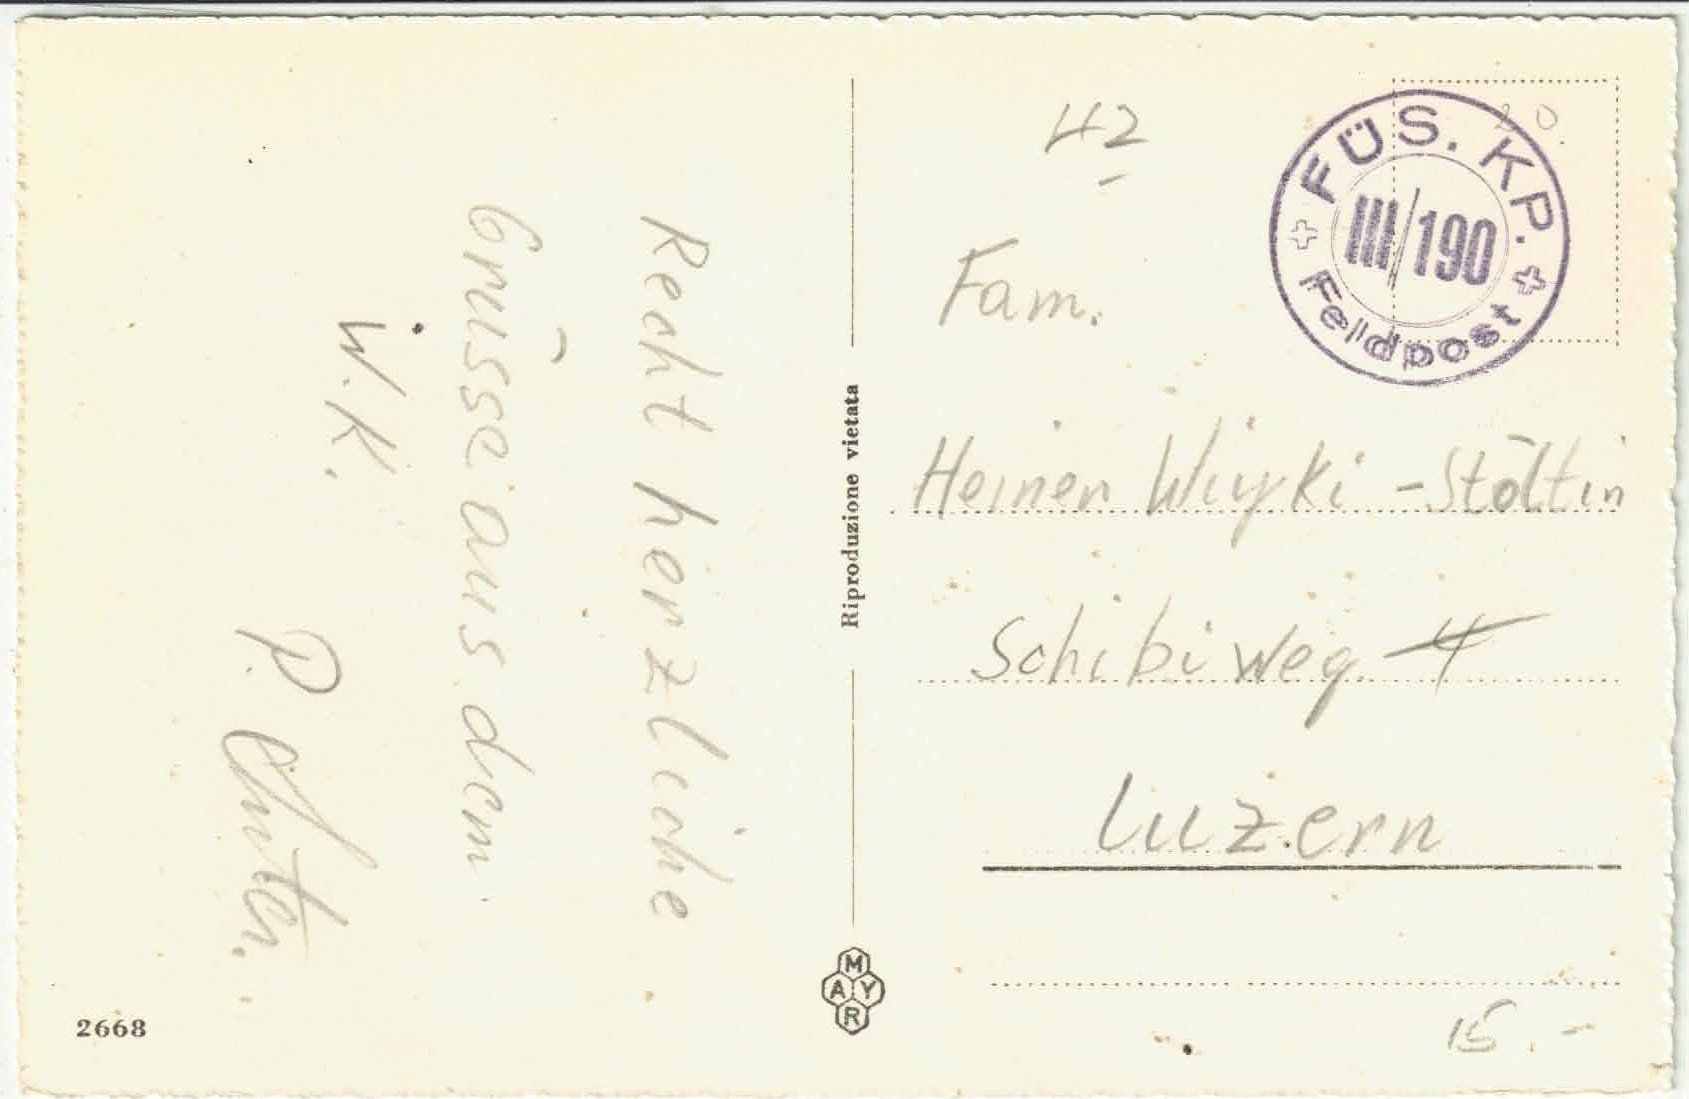 Recht herzliche
Grüsse aus dem
W.K.
P.
2668
Riproduzione vietata
MAYR
42
FÜS. KP.
III/190
Feldpost
20.
Fam.
Heiner
Schibiweg 4
Luzern
15.-